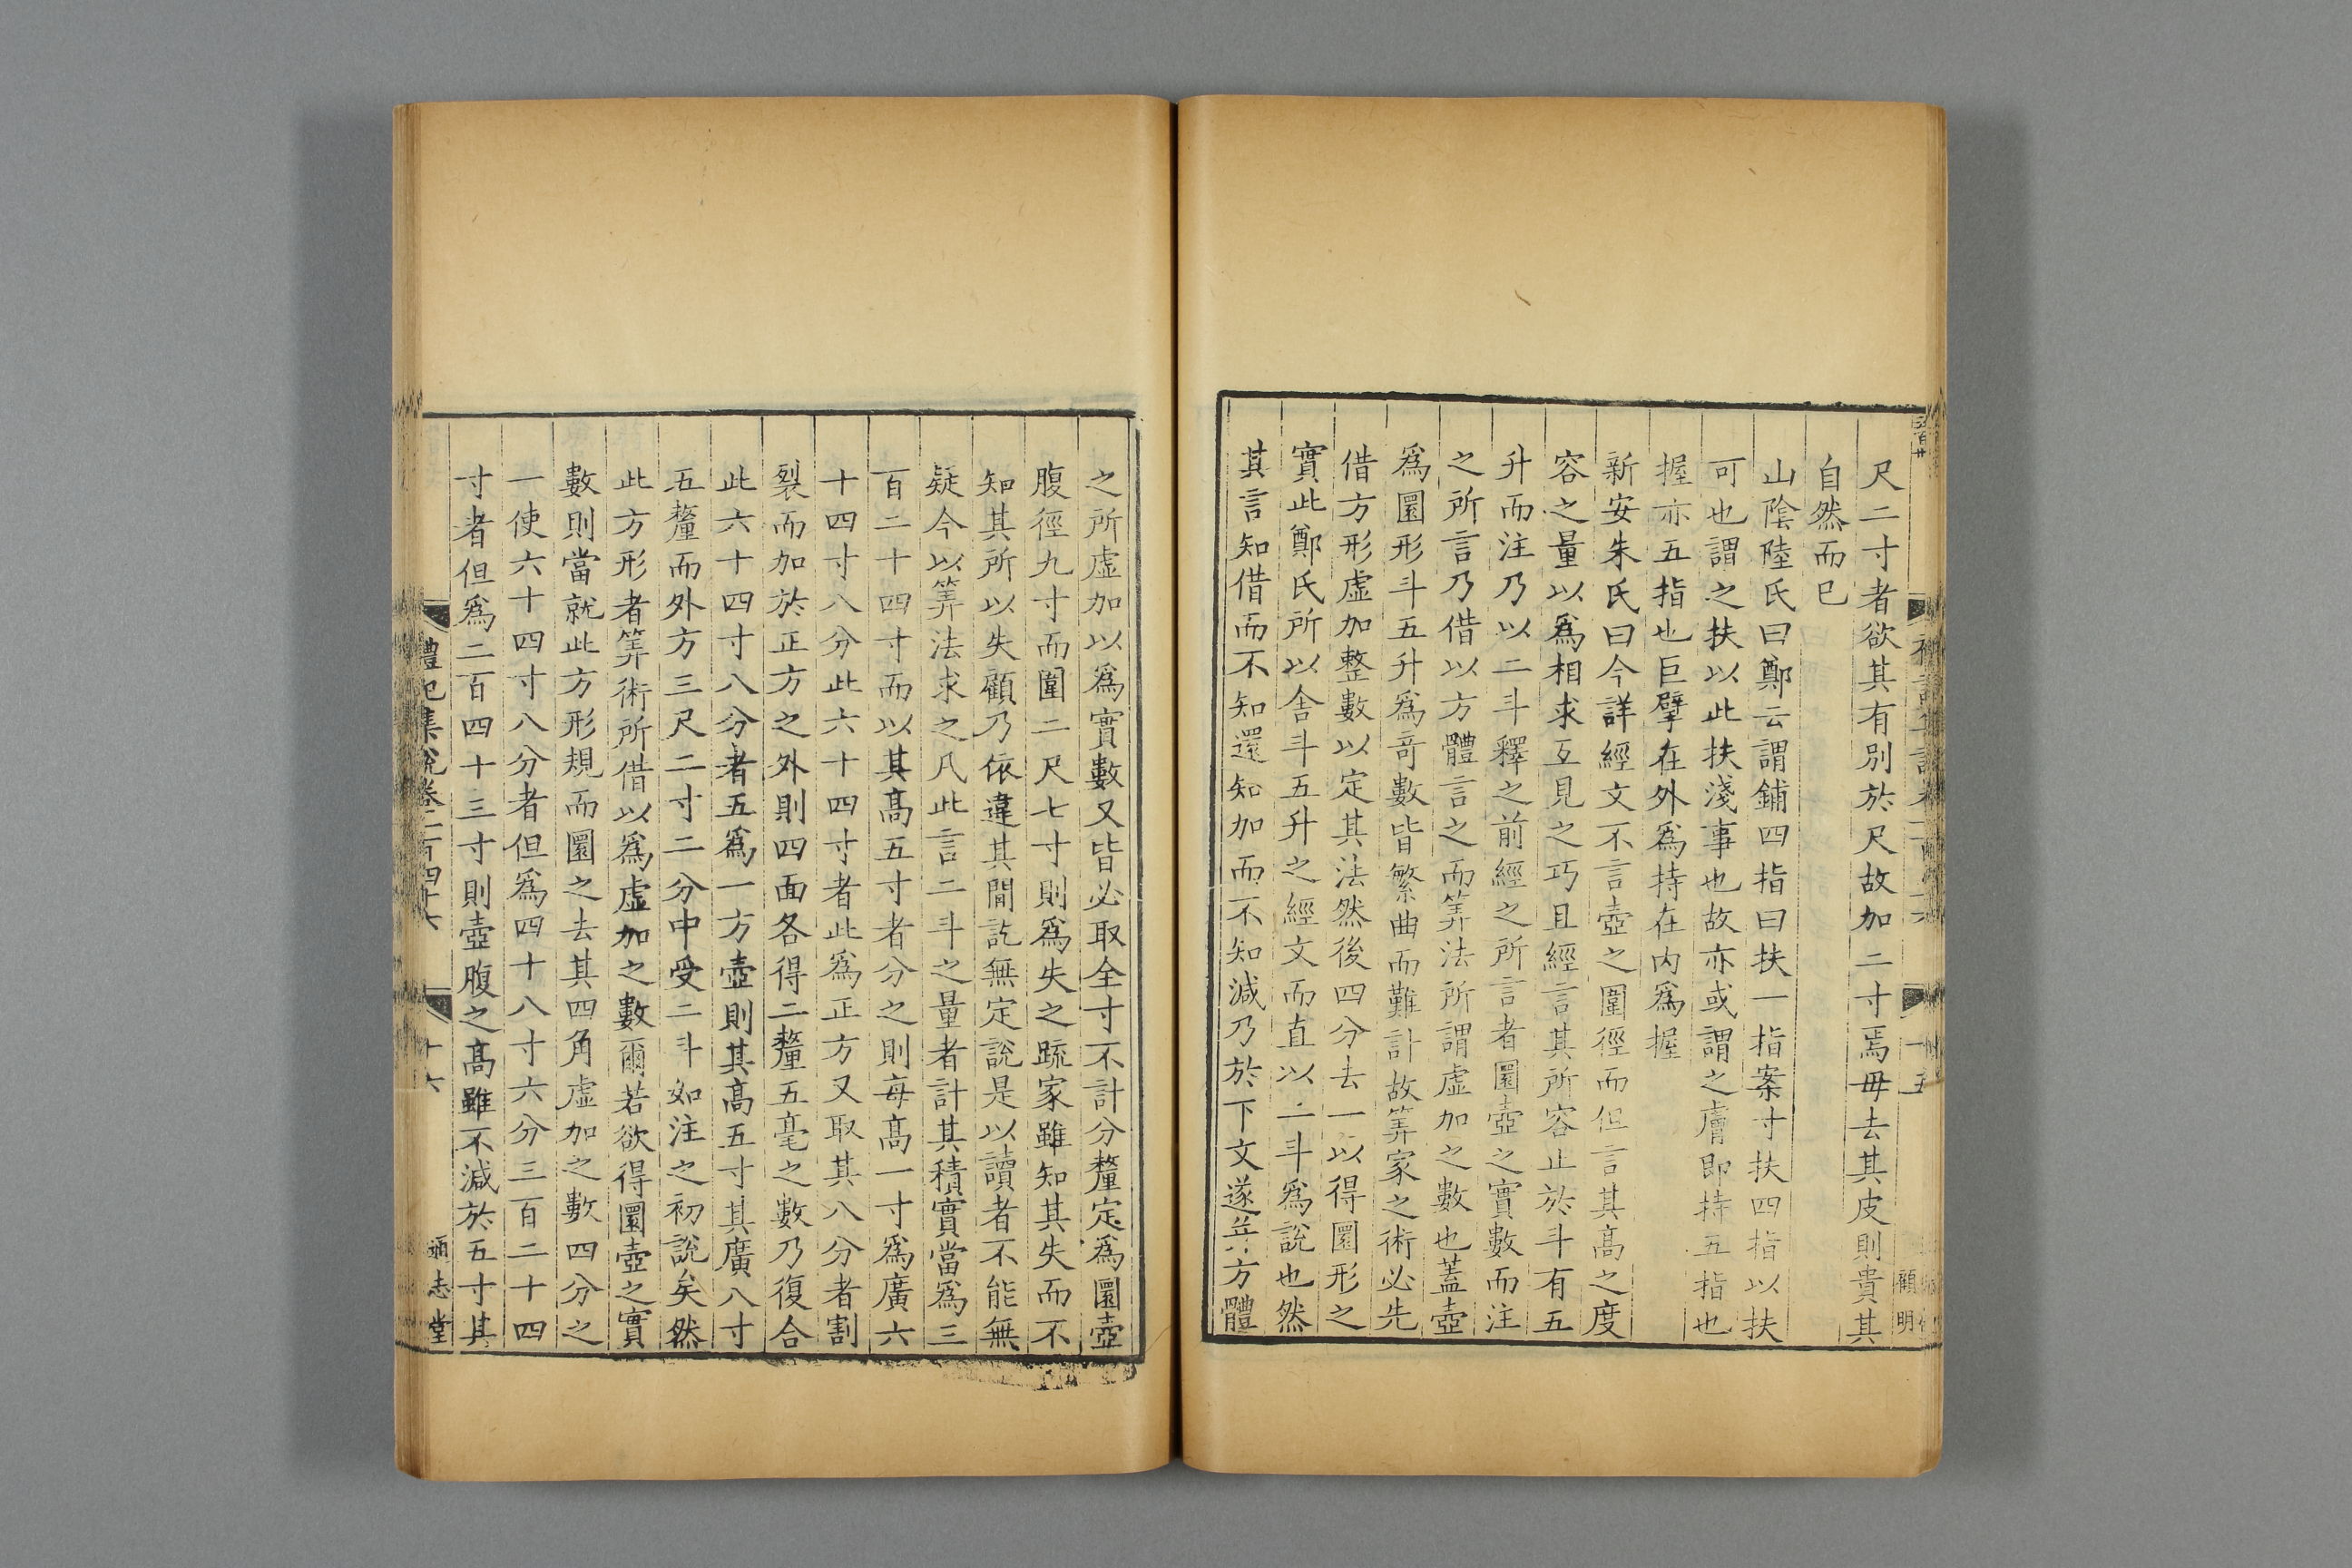 尺二寸者欲其有別於尺故加二寸焉毋去其皮則貴其
自然而已
山陰陸氏曰鄭云謂鋪四指曰扶一指案寸扶四指以扶
可也謂之扶以此扶淺事也故亦或謂之膚即持五指也
握亦五指也巨擘在外爲持在内爲握
新安朱氏曰今詳經文不言壺之圍徑而但言其髙之度
容之量以爲相求互見之巧且經言其所容止於斗有五
升而注乃以二斗釋之前經之所言者圜壺之實數而注
之所言乃借以方體言之而筭法所謂虚加之數也蓋壺
爲圜形斗五升爲竒數皆繁曲而難計故筭家之術必先
借方形虚加整數以定其法然後四分去一以得圜形之
實此鄭氏所以舎斗五升之經文而直以二斗爲說也然
其言知借而不知還知加而不知減乃於下文遂并方體
之所虚加以爲實數又皆必取全寸不計分釐定爲圜壺
腹徑九寸而圍二尺七寸則爲失之䟽家雖知其失而不
知其所以失顧乃依違其間訖無定說是以讀者不能無
疑今以筭法求之凡此言二斗之量者計其積實當爲三
百二十四寸而以其髙五寸者分之則每髙一寸爲廣六
十四寸八分此六十四寸者此爲正方又取其八分者割
裂而加於正方之外則四面各得二釐五毫之數乃復合
此六十四寸八分者五爲一方壺則其髙五寸其廣八寸
五釐而外方三尺二寸二分中受二斗如注之初說矣然
此方形者筭術所借以爲虚加之數爾若欲得圜壺之實
數則當就此方形規而圜之去其四角虚加之數四分之
一使六十四寸八分者但爲四十八寸六分三百二十四
寸者但爲二百四十三寸則壺腹之髙雖不減於五寸其
禮記集說卷二百四十六
十六
通志堂